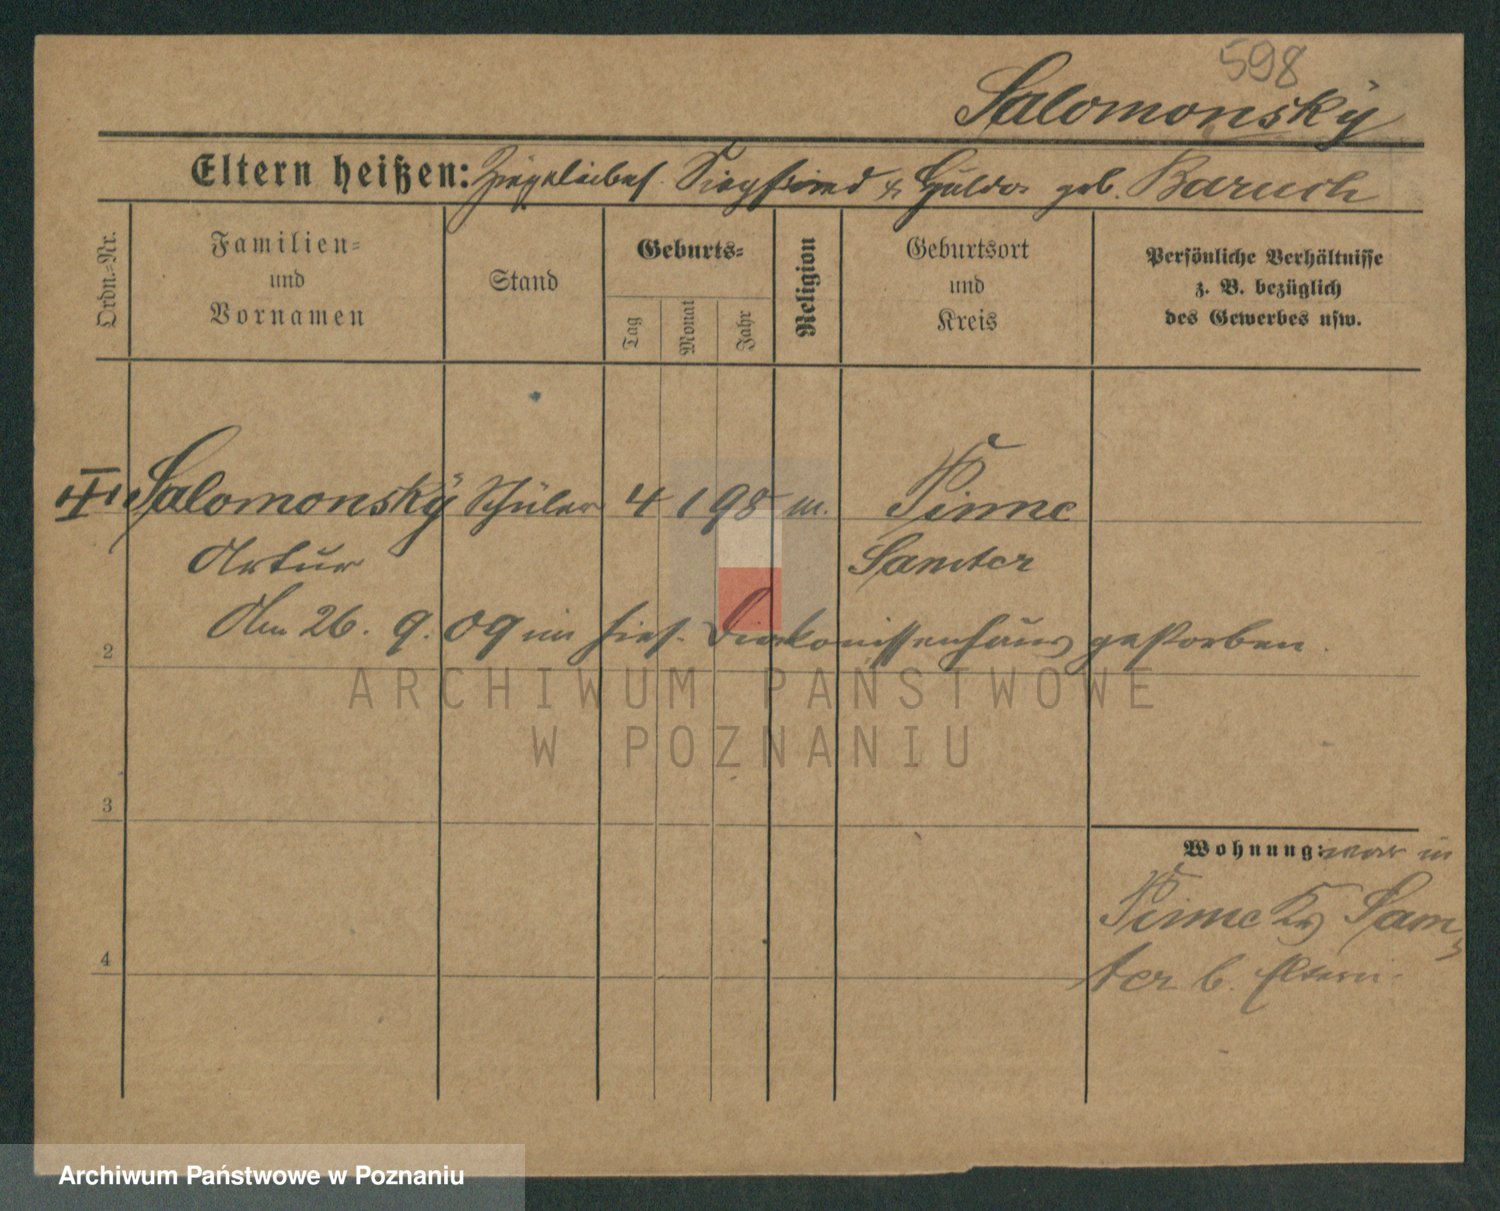 598
Salomonsky
Eltern heißen: Ziegeleibes. Siegfried & Hulda geb. Baruch
Ordn.-Nr.
Familien-
und
Vornamen
Stand
Geburts-
Tag
Monat
Jahr
Religion
Geburtsort
und
Kreis
Persönliche Verhältnisse
z. B. bezüglich
des Gewerbes usw.
Salomonsky Schüler 4 1 98 m. Pinne
Artur Samter
Am 26. 9. 09 im hies. Diakonissenhaus gestorben.
2
ARCHIWUM PAŃSTWOWE
W POZNANIU
3
Wohnung: war in
Pinne Kr Sam-
4
ter b. Eltern.
Archiwum Państwowe w Poznaniu